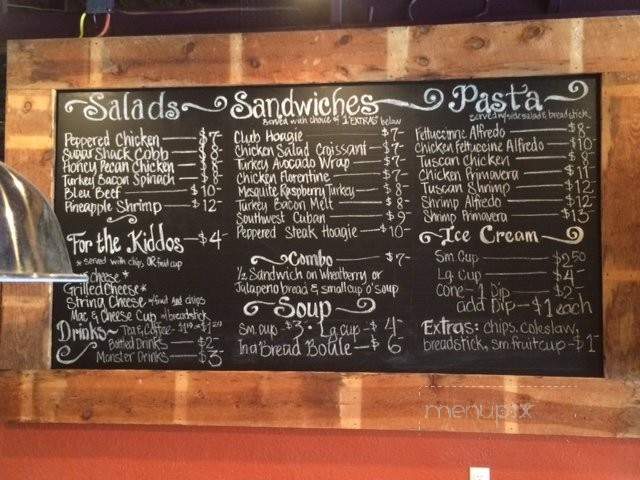 Salads
Peppered Chicken $7-
Sugar Shack Cobb $8-
Honey Pecan Chicken $8-
Turkey Bacon Spinach $8-
Bleu Beef $10-
Pineapple Shrimp $12-
For the Kiddos $4-
* served with chips OR fruit cup
cheese*
Grilled Cheese*
String Cheese w/ fruit and chips
Mac & Cheese Cup w/ breadstick
Drinks Tea & Coffee
Bottled Drinks $2-
Monster Drinks $3-
Sandwiches
Served with choice of 1 "EXTRAS" below
Club Hoagie $7-
Chicken Salad Croissant $7-
Turkey Avocado Wrap $7-
Chicken Florentine $7-
Mesquite Raspberry Turkey $8-
Turkey Bacon Melt $8-
Southwest Cuban $9-
Peppered Steak Hoagie $10-
Combo $7-
1/2 Sandwich on Wheatberry or
Jalapeno bread & small cup o' soup
Soup
Sm. cup $3 • Lg cup $4-
In a Bread Boule $6-
Pasta
served w/ side salad & breadstick
Fettuccine Alfredo $8-
Chicken Fettuccine Alfredo $10-
Tuscan Chicken $8-
Chicken Primavera $11-
Tuscan Shrimp $12-
Shrimp Alfredo $12-
Shrimp Primavera $13-
Ice Cream
Sm. Cup $2.50
Lg. Cup $4-
Cone - 1 Dip $2-
add Dip - $1 each
Extras: chips, coleslaw,
breadstick, sm. fruit cup - $1
menupix